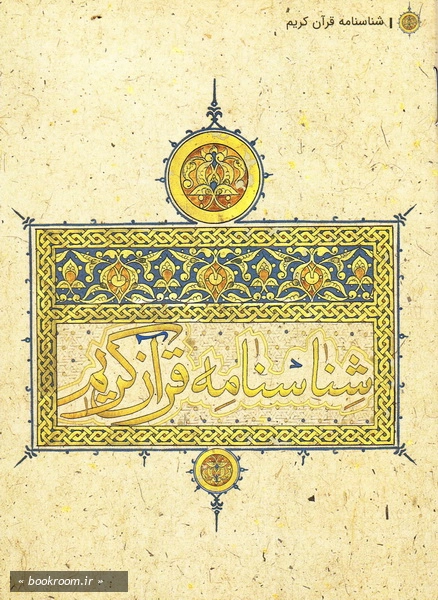 شناسنامه قرآن کریم
شناسنامه قرآن کریم
« bookroom.ir »